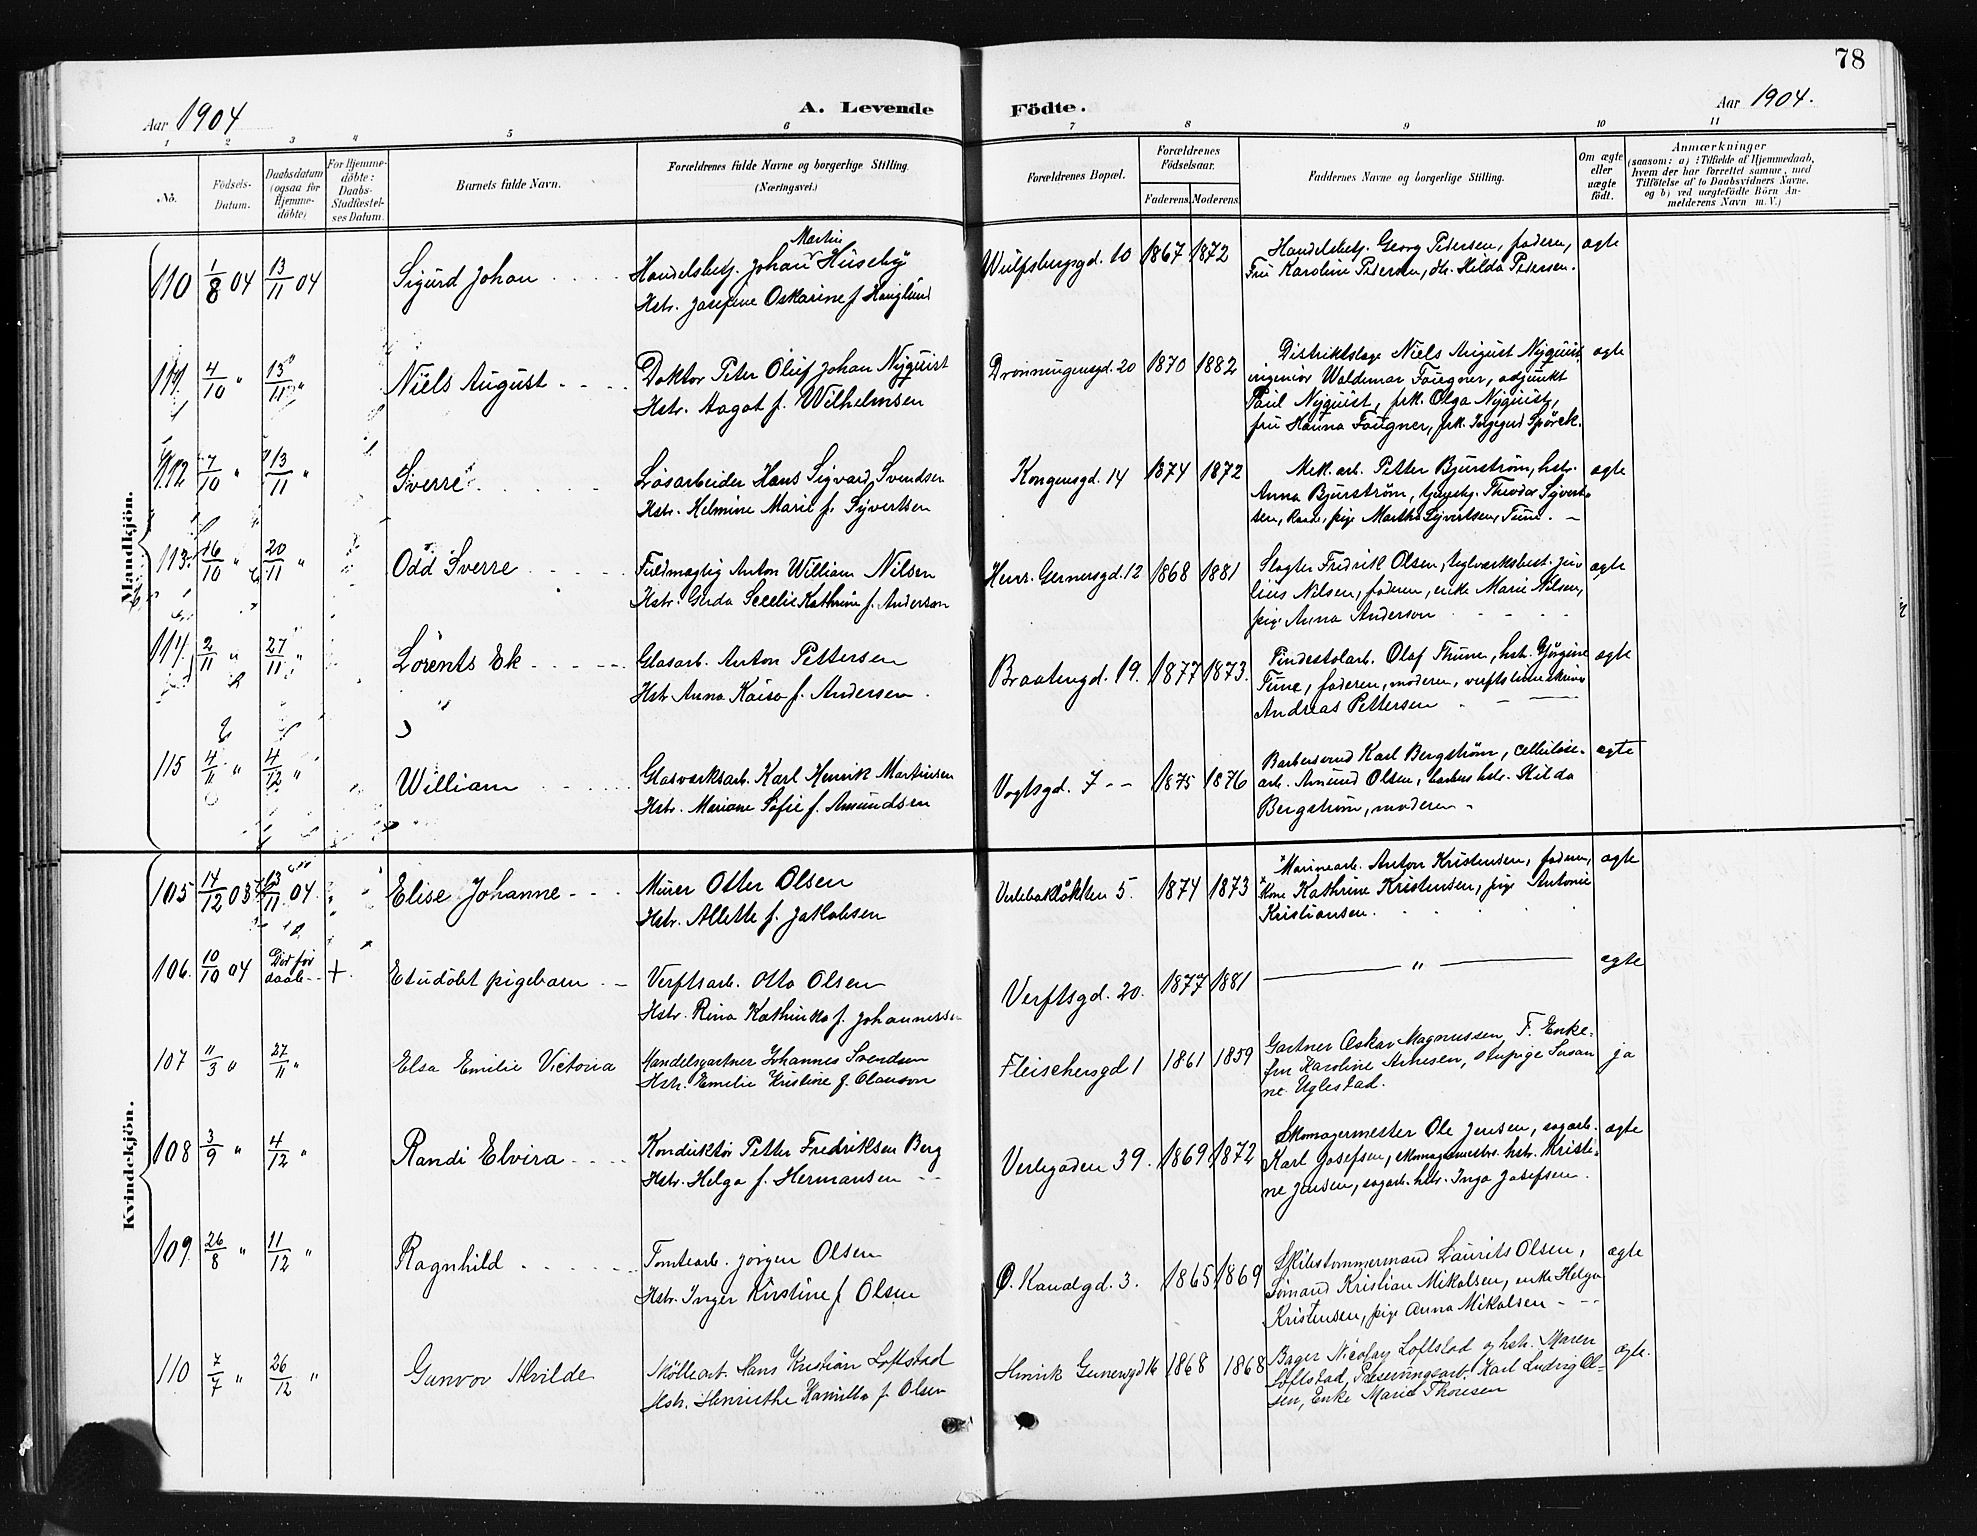 78
Aar 1904
A. Levende Födte.
Aar 1904.
1 2 3 4 5 6 7 8 9 10 11
No.
Födsels-Datum.
Daabsdatum (ogsaa for Hjemme-döbte)
For Hjemme-döbte: Daabs-Stadfæstel-ses Datum.
Barnets fulde Navn.
Forældrenes fulde Navne og borgerlige Stilling. (Næringsvei.)
Forældrenes Bopæl.
Forældrenes Födselsaar.
Faderens. Moderens.
Faddernes Navne og borgerlige Stilling.
Om ægte eller uægte födt.
Anmærkninger
(saasom: a) i Tilfælde af Hjemmedaab, hvem der har forrettet samme, med Tilföielse af to Daabsvidners Navne, og b) ved uægtefödte Börn An-melderens Navn m. V.)
Mandkjön.
110 1/8 04 13/11 04 Sigurd Johan Handelsbetj. Johan Martin Huseby
Hstr. Josefine Oskarine f. Hauglund
Wulfsbergsgd. 10 1867 1872
Handelsbetj. Georg Pedersen, faderen,
Fru Karoline Pedersen, Hilda Pedersen.
ægte
111 4/10 " 13/11 " Niels August Doktor Peter Oluf Johan Nyquist
Hstr. Aagot f. Wilhelmsen
Dronningensgd. 20 1870 1882
Distriktslæge Niels August Nyquist,
ingeniör Waldemar Fougner, adjunkt
Paul Nyquist, frk. Olga Nyquist,
fru Hanna Fougner, frk. Ingegerd Spörck.
ægte
112 7/10 " 13/11 " Sverre Lösarbeider Hans Sigvard Svendsen
Hstr. Helmine Marie f. Syvertsen
Kongensgd. 14 1874 1872
Mek. arb. Petter Bjurström, hstr.
Anna Bjurström, Theodor Syvert-
sen, Raade, pige Martha Syvertsen, Tune.
ægte
113 16/10 " 20/11 " Odd Sverre Fuldmægtig Anton William Nilsen
Hstr. Gerda Secelie Kathrine f. Anderson
Henr. Gernersgd. 12 1868 1881
Slagter Fredrik Olsen, teglværksbest. Ju-
lius Nilsen, faderen, enke Marie Nilsen,
pige Anna Anderson
ægte
114 2/11 " 27/11 " Lorents Ek Glasarb. Anton Pettersen
Hstr. Anna Kaisa f. Andersen.
Braatengd. 19. 1877 1873.
Pindestolarb. Olaf Thune, hstr. Gjörgine
Tune, faderen, moderen,
Andreas Pettersen
ægte
115 4/11 " 4/12 " William Glasværksarb. Karl Henrik Martinsen
Hstr. Mariane Sofie f. Amundsen
Vogtsgd. 7 1875 1876
Barbersvend Karl Bergström, cellulose-
arb. Amund Olsen, barber hstr. Hilda
Bergström, moderen
ægte
Kvindekjön.
105 14/12 03 13/11 04 Elise Johanne Murer Otter Olsen
Hstr. Allette f. Jakobsen
Verlebakløkken 5. 1874 1873
Marinearb. Anton Kristensen, faderen,
Kone Kathrine Kristensen, pige Antonie
Kristiansen.
ægte
106. 10/10 04 Död för daab + Et udöbt pigebarn Verftsarb. Otto Olsen
Hstr. Rina Kathinka f. Johannessen
Verftsgd. 20. 1877 1881
"
ægte
107 11/3 " 27/11 " Elsa Emilie Victoria Handelsgartner Johannes Svendsen
Hstr. Emilie Kristine f. Olauson
Fleischersgd 1 1861 1859
Gartner Oskar Magnussen, F. Enke-
fru Karoline Arnesen, stuepige Susan
ne Uglestad.
ja
108 3/9 " 4/12 " Randi Elvira Konduktör Petter Fredriksen Berg
Hstr. Helga f. Hermansen
Verlegaden 39. 1869 1872
Skomagermester Ole Jensen, sagarb.
Karl Josefsen, skomagermestres hstr. Kristi-
ne Jensen, sagarb. hstr. Inga Josefsen.
ægte
109. 26/8 " 11/12 " Ragnhild Tomtearb. Jörgen Olsen
Hstr. Inger Kirstine f. Olsen
Ö. Kanalgd. 3. 1865 1869
Skibstömmermand Laurits Olsen,
Sömand Kristian Mikalsen, enke Helga
Kristensen, pige Anna Mikalsen
ægte
110 7/7 " 26/12 " Gunvor Alvilde Möllearb. Hans Kristian Loftstad
Hstr. Henriethe Kamilla f. Olsen
Henrik Gernersgd 16 1868 1868
Bager Nicolay Loftstad og hstr. Maren
Loftstad, Preserveringsarb. Karl Ludvig Ol-
sen, Enke Marie Thoresen
ægte.